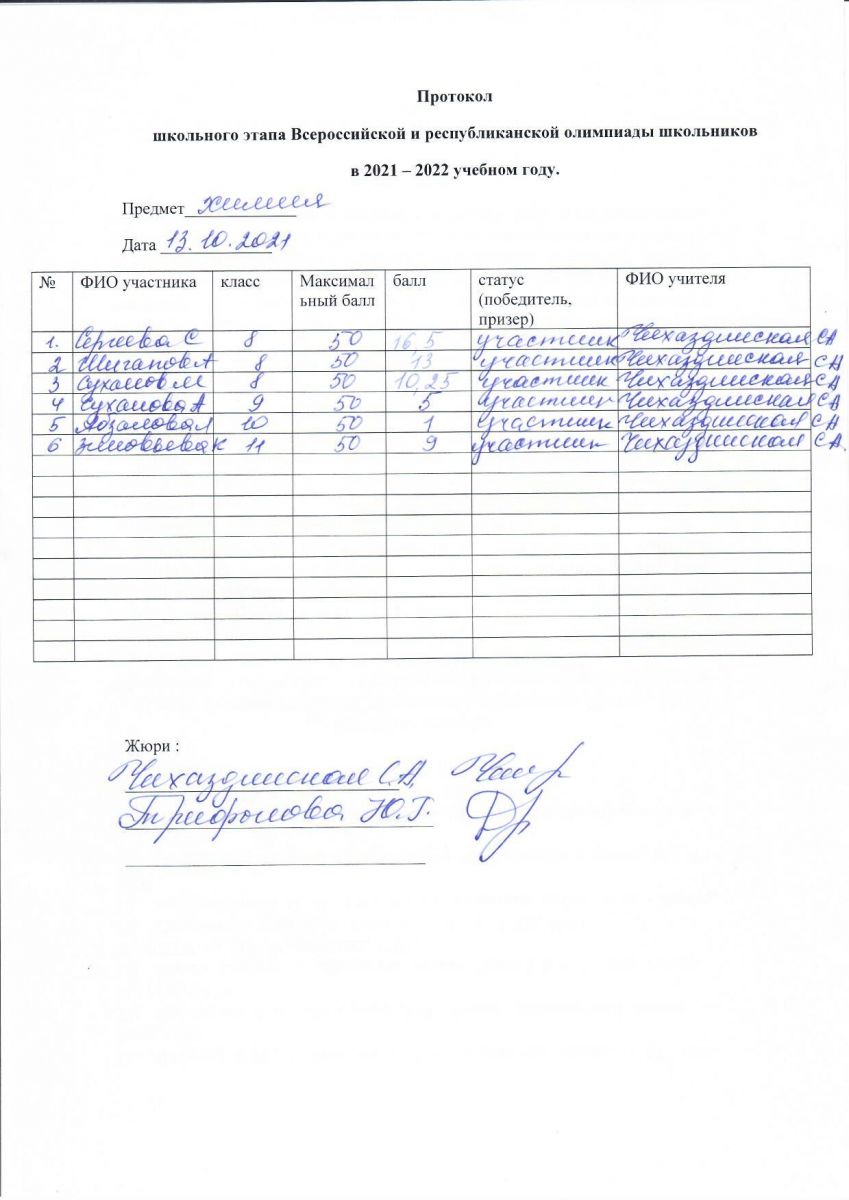 Протокол
школьного этапа Всероссийской и республиканской олимпиады школьников
в 2021 – 2022 учебном году.
Предмет химия
Дата 13.10.2021
№ ФИО участника класс Максимальный балл балл статус (победитель, призер) ФИО учителя
1. Сергеева С 8 50 16,5 участник Чихаздинская СА
2 Шигапов А 8 50 13 участник Чихаздинская СА
3 Суханов М 8 50 10,25 участник Чихаздинская СА
4 Суханова А 9 50 5 участник Чихаздинская СА
5 10 50 1 участник Чихаздинская СА
6 Зиновьева К 11 50 9 участник Чихаздинская С.А.
Жюри :
Чихаздинская С.А.
Трифонова Ю.Г.